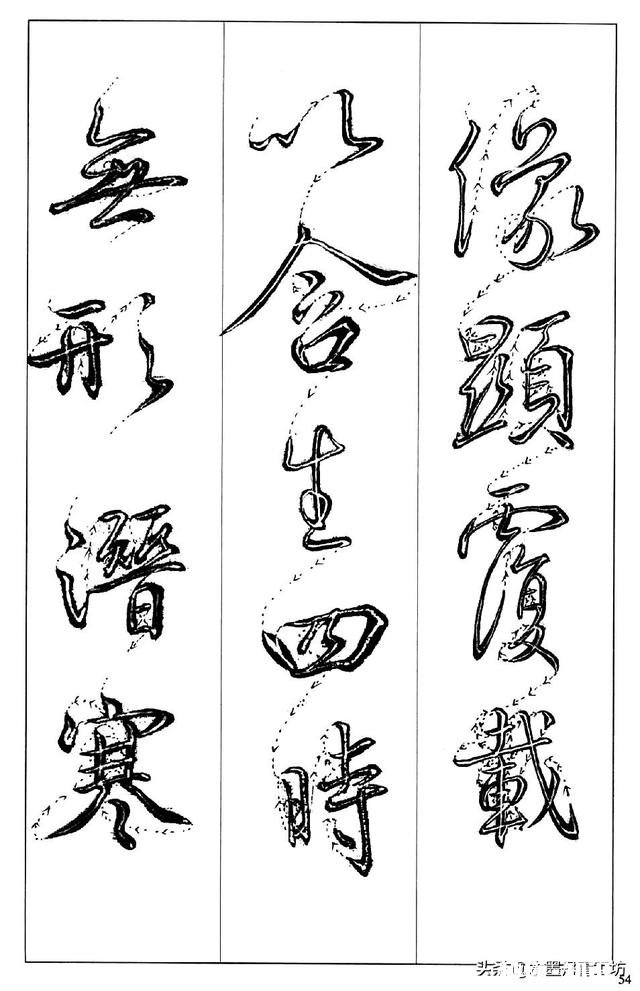 像顯覆載
以含生四時
無形潛寒
54